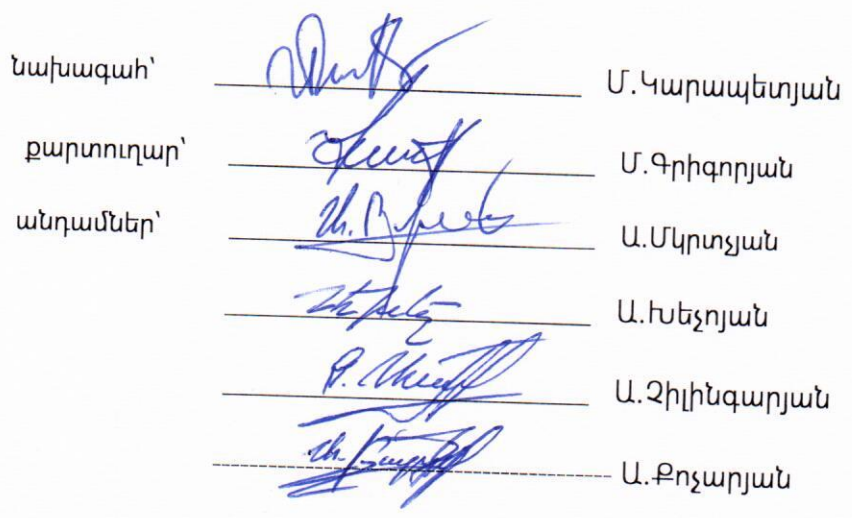 նախագահ՝ Մ.Կարապետյան
քարտուղար՝ Մ.Գրիգորյան
անդամներ՝ Ա.Մկրտչյան
Ա.Խեչոյան
Ա.Չիլինգարյան
Ա.Քոչարյան